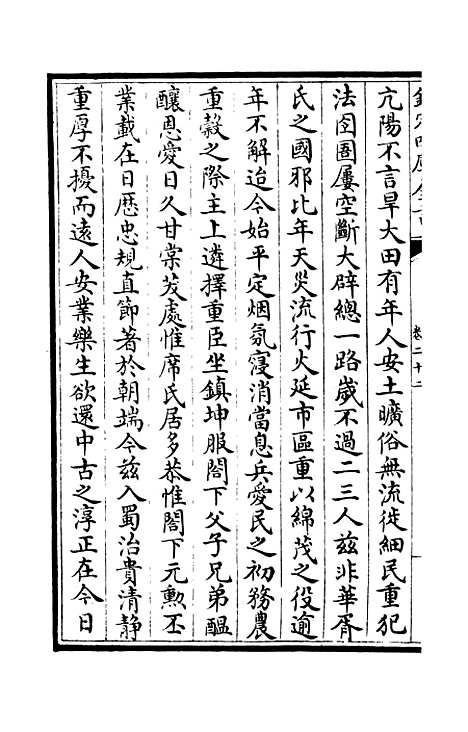 欽定四庫全書
卷二十二
亢陽不言旱大田有年人安土曠俗無流徙細民重犯
法囹圄屢空斷大辟總一路歲不過二三人兹非華胥
氏之國邪比年天災流行火延市區重以綿茂之役逾
年不解迨今始平定烟氛寖消當息兵愛民之初務農
重穀之際主上遴擇重臣坐鎮坤服閤下父子兄弟醖
釀恩愛日久甘棠茇處惟席氏居多恭惟閤下元勲丕
業載在日歴忠規直節著於朝端今兹入蜀治貴清静
重厚不擾而遠人安業樂生欲還中古之淳正在今日